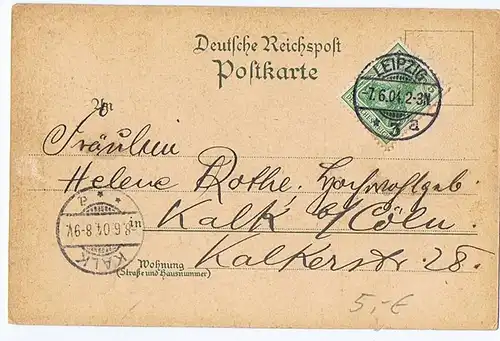 Deutsche Reichspost
Postkarte
LEIPZIG
-7.6.04.2-3N
* 3 a
An
Fräulein
Helene Rothe, Hochwohlgeb.
in Kalk b/Cöln.
Kalkerstr. 28.
Wohnung
(Straße und Hausnummer)
KALK
8.6.04.8-9V.
* * a
5,-€